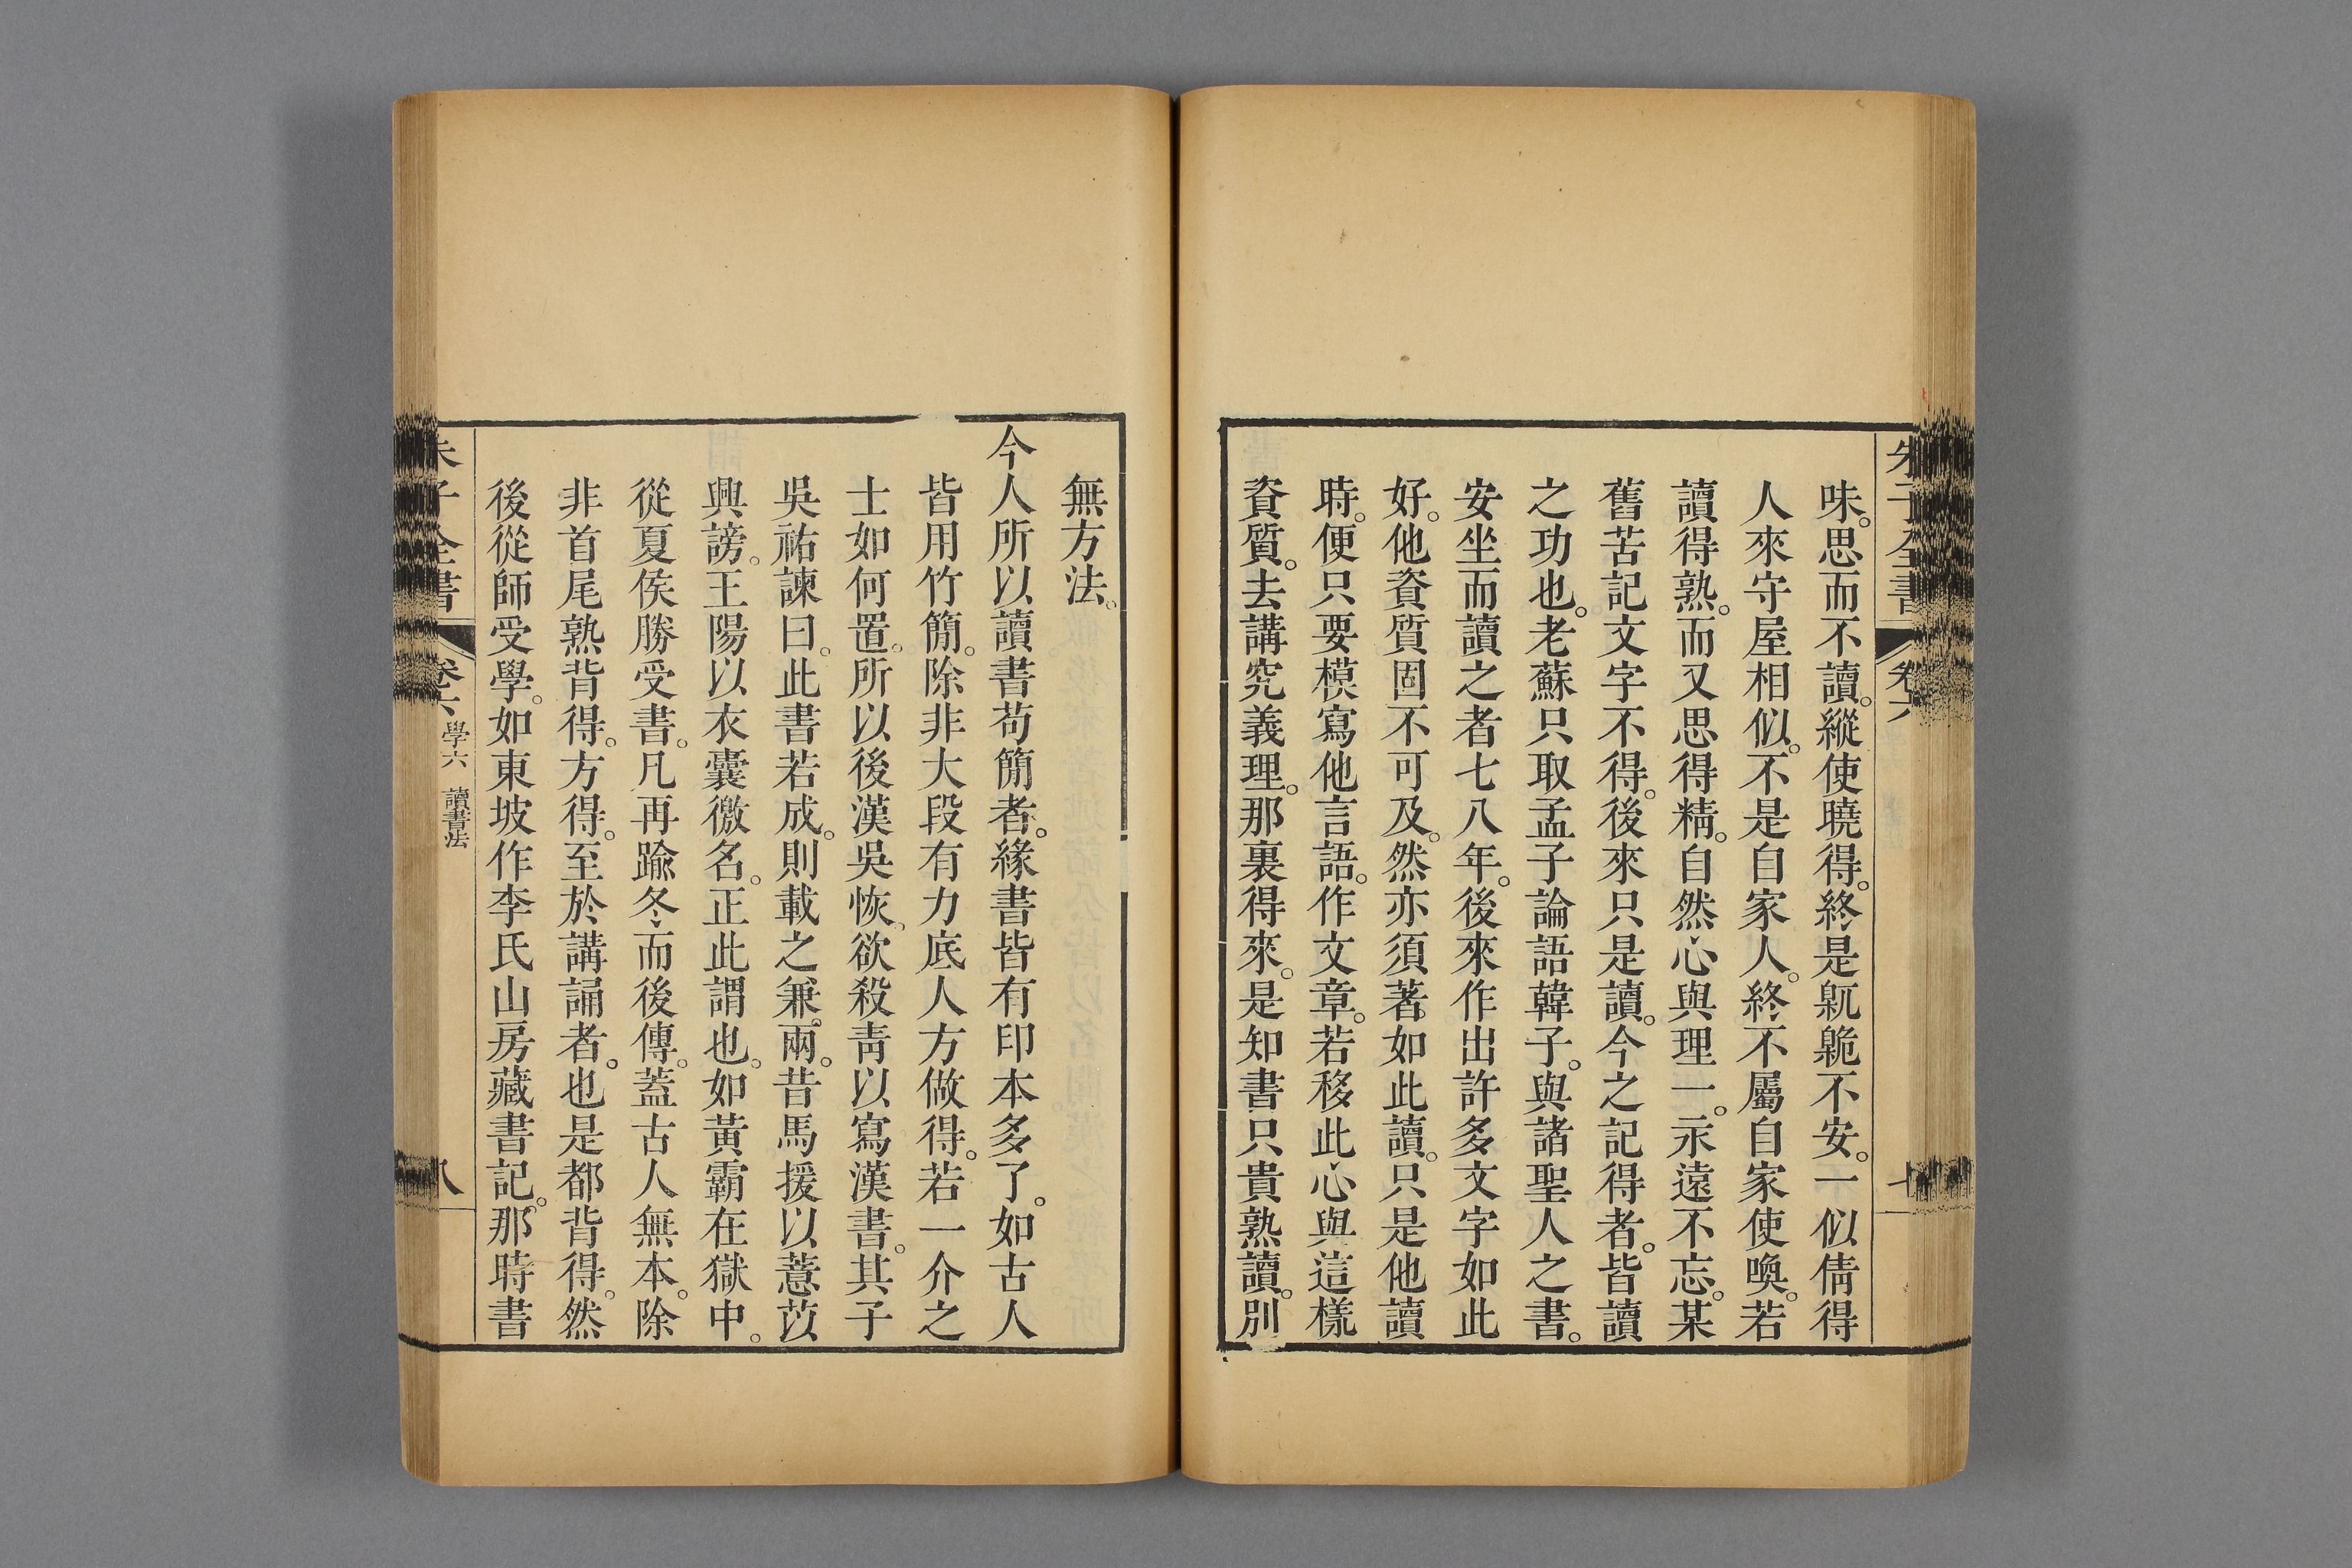 朱子全書 卷六
味。思而不讀。縱使曉得。終是卼臲不安。一似倩得
人來守屋相似。不是自家人。終不屬自家使喚。若
讀得熟。而又思得精。自然心與理一。永遠不忘。某
舊苦記文字不得。後來只是讀。今之記得者。皆讀
之功也。老蘇只取孟子論語韓子。與諸聖人之書。
安坐而讀之者七八年。後來作出許多文字如此
好。他資質固不可及。然亦須著如此讀。只是他讀
時。便只要模寫他言語。作文章。若移此心與這樣
資質。去講究義理。那裏得來。是知書只貴熟讀。別
無方法。
今人所以讀書苟簡者。緣書皆有印本多了。如古人
皆用竹簡。除非大段有力底人方做得。若一介之
士如何置。所以後漢吳恢。欲殺靑以寫漢書。其子
吳祐諫曰。此書若成。則載之兼兩。昔馬援以薏苡
興謗。王陽以衣囊徼名。正此謂也。如黃霸在獄中。
從夏侯勝受書。凡再踰冬而後傳。蓋古人無本。除
非首尾熟背得。方得。至於講誦者。也是都背得。然
後從師受學。如東坡作李氏山房藏書記。那時書
朱子全書 卷六 學六 讀書法 八